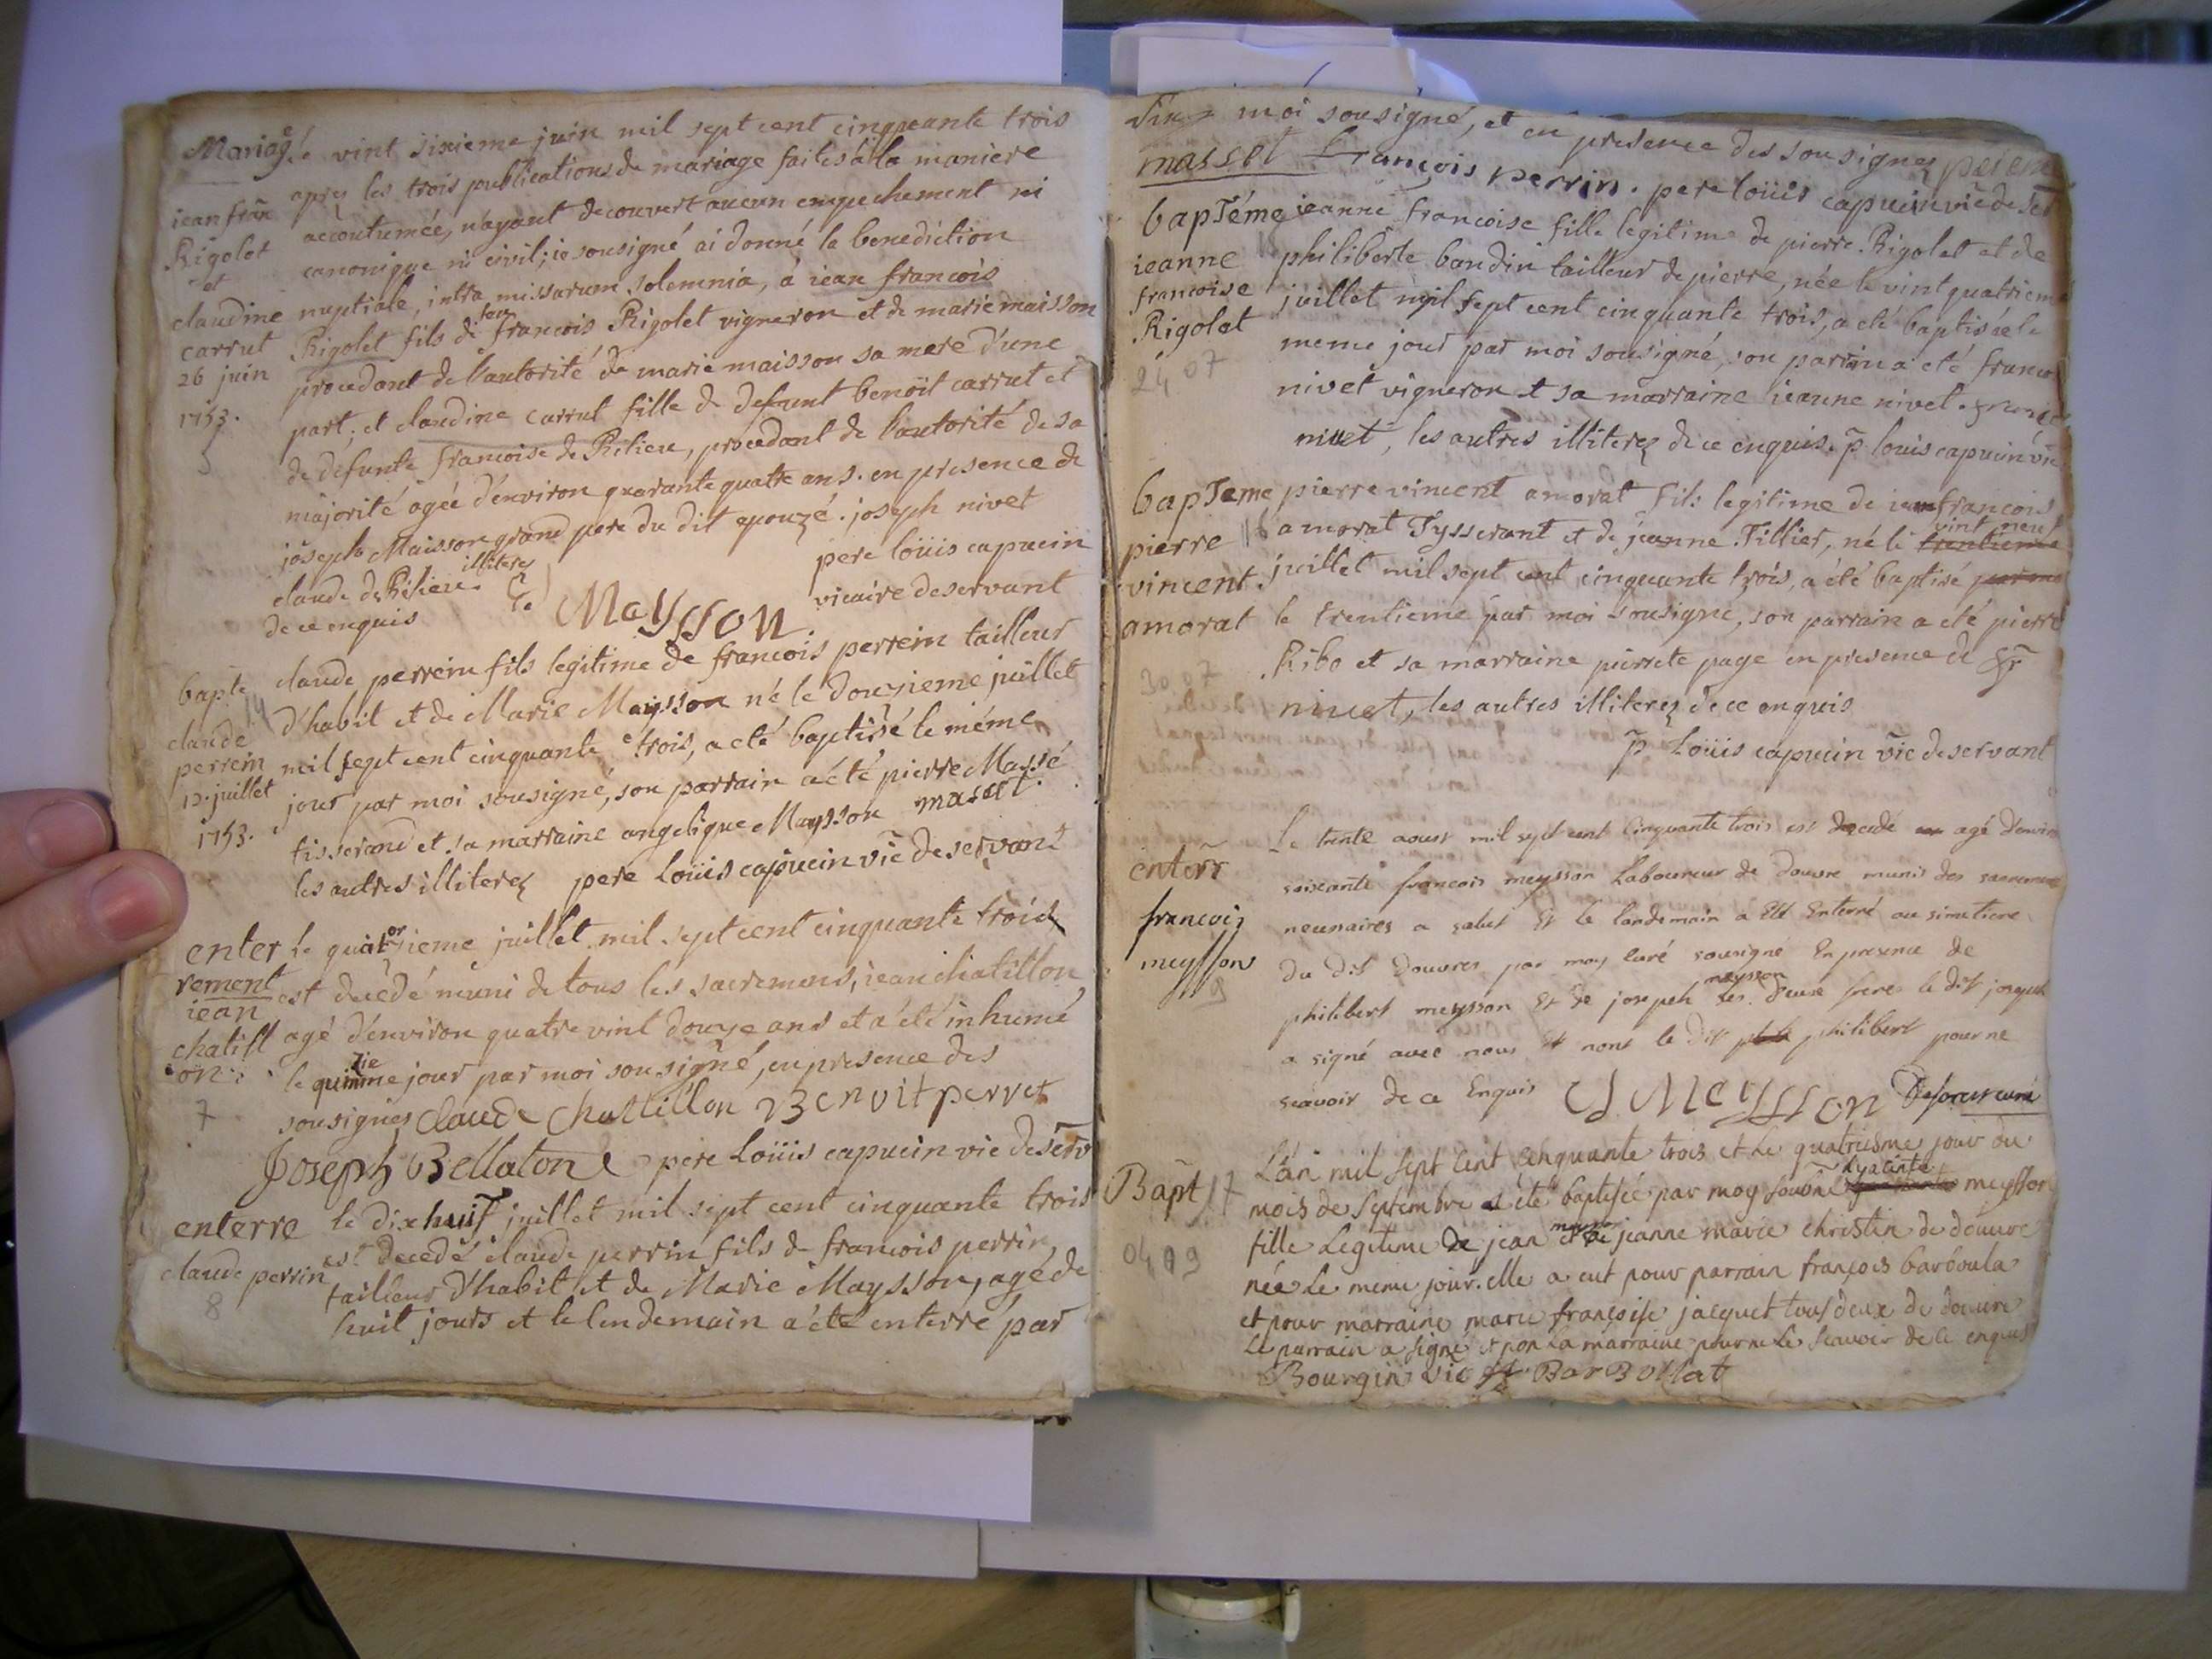 Mariage
jean franc
Rigolet
et
claudine
carrut
26 juin
1753.
5
le vint sixieme juin mil sept cent cinquante trois
apres les trois publications de mariage faites à la maniere
accoutumée, n'ayant decouvert aucun empechement ni
canonique ni civil; ie sousigné ai donné la benediction
nuptiale, intra missarum solemnia, à iean francois
Rigolet fils de feu francois Rigolet vigneron et de marie maisson
procedant de l'autorité de marie maisson sa mere d'une
part; et claudine carrut fille de defunt benoit carrut et
de defunte francoise de Rilieu, procedant de l'autorité de sa
majorité agée d'environ quarante quatre ans. en presence de
joseph Maisson grand pere du dit epouzé. joseph nivet
claude de Rilieu. illiterez pere loüis capucin
de ce enquis MaySSon vicaire deservant
bapte
14
claude
perrein
12. juillet
1753.
claude perrein fils legitime de francois perrein tailleur
d'habit et de Marie Maysson né le douzieme juillet
mil sept cent cinquante trois, a eté baptisé le méme
jour par moi sousigné, son parrain a été pierre Massé
tisserand et sa marraine angelique Maysson masset.
les autres illiterez pere Loüis capucin vic deservant
enter
rement
iean
chatill
on
7
Le quatorzieme juillet mil sept cent cinquante trois
est decédé muni de tous les sacremens, iean chatillon
agé d'environ quatre vint douze ans et a été inhumé
le quinzieme jour par moi sousigné, en presence des
sousignes Claude Chattillon Benoit perret
Joseph Bellaton pere Loüis capucin vic deserv
enterre
claude perrin
8
le dixhuit juillet mil sept cent cinquante trois
est decedé claude perrin fils de francois perrin
tailleur d'habit et de Marie Maysson, agé de
huit jours et le lendemain a été enterré par
moi sousigné, et en presence des sousignez
masset François perrin. pere loüis capucin vic deser
bapTéme
15
ieanne
francoise
Rigolet
24 07
ieanne francoise fille legitime de pierre Rigolet et de
philiberte bandin tailleur de pierre, née le vint quatrieme
juillet mil sept cent cinquante trois, a eté baptisée le
meme jour par moi sousigné, son parrain a eté franco
nivet vigneron et sa marraine ieanne nivet.
nivet, les autres illiterez de ce enquis. p louis capucin vic
bapTeme
16
pierre
vincent
amorat
30 07
pierre vincent amorat fils legitime de iean francois
amorat Tysserant et de jeanne Tillier, né le trentieme vint neuf
juillet mil sept cent cinquante trois, a été baptisé par moi
le trentieme par moi sousigné, son parrain a eté pierre
Ribo et sa marraine pierrete page en presence de fr
nivet, les autres illiterez de ce enquis
p Loüis capucin vic deservant
enterr
francois
meysson
9
Le trente aoust mil sept cent Cinquante trois est decedé agé d'envir
soixante francois meysson Laboureur de Douvre munis des sacremens
necessaires a salut Et le landemain a Eté Enterré au simetiere
du dit Douvres par moy curé sousigné En presence de
philibert meysson Et de joseph meysson les Deux freres le dit joseph
a signé avec nous Et nont le dit philibert pour ne
scavoir de ce Enquis J MeySSon curé
Bapt 17
04 09
L'an mil sept cent cinquante trois et Le quatriesme jour du
mois de Septembre a été baptisée par moy soussné hyacinte meysson
fille Legitime de jean meysson et de jeanne marie christin de douvre
née Le meme jour. elle a eut pour parrain françois barboula
et pour marraine marie françoise jacquet tous deux de douvre
Le parrain a signé et non La marraine pour ne Le scavoir de ce enquis
Bourgin vic BarBollat